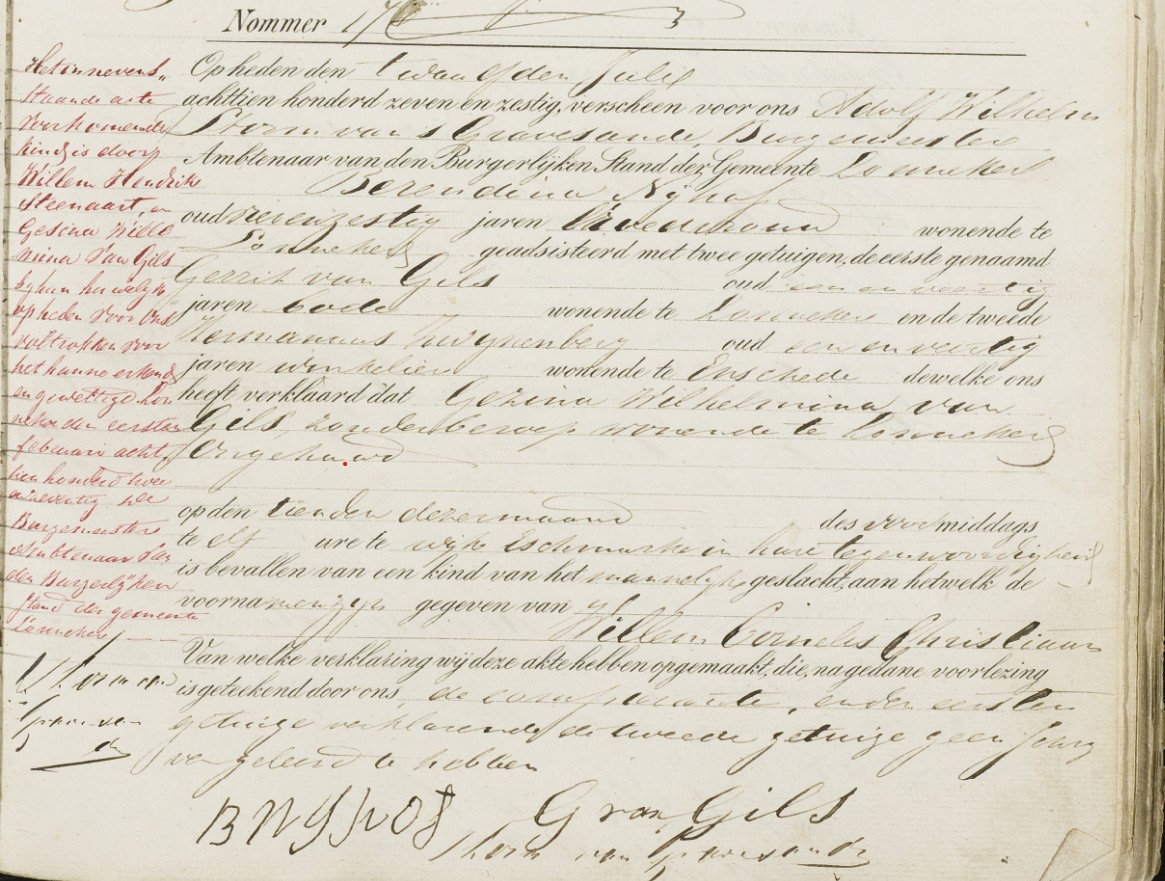 Nommer 176
Op heden den twaalfden Julij
achttien honderd zeven en zestig, verscheen voor ons Adolf Wilhelm
Storm van 's Gravesande, Burgemeester
Ambtenaar van den Burgerlijken Stand der Gemeente Lonneker
Berendina Nijhof
oud zestig jaren Vroedvrouw wonende te
Lonneker geadsisteerd met twee getuigen, de eerste genaamd
Gerrit van Gils oud een en veertig
jaren bode wonende te Lonneker en de tweede
Hermannus oud een en veertig
jaren winkelier wonende te Enschede dewelke ons
heeft verklaard dat Gezina Wilhelmina van
Gils, zonder beroep wonende te Lonneker
Ongehuwd
op den tienden dezer maand des voormiddags
te elf ure te wijk Eschmarke in hare tegenwoordigheid
is bevallen van een kind van het mannelijk geslacht, aan hetwelk de
voornamen zijn gegeven van
Willem Cornelis Christiaan
Van welke verklaring wij deze akte hebben opgemaakt, die, na gedane voorlezing
is geteekend door ons, de comparante, en den eersten
getuige verklarende de tweede getuige geen
geleerd te hebben
BNijhof G van Gils
Storm van 's Gravesande
Het in nevens-
staande acte
voorkomende
kind is door
Willem Hendrik
Steenaart, en
Gesina Wilhel
mina van Gils
bij hun huwelijk
op heden voor ons
voltrokken voor
het hunne erkend
en gewettigd Lon
neker den eersten
februari acht
tien honderd twee
en zeventig De
Burgemeester
Ambtenaar van
den Burgerlijken
stand der gemeente
Lonneker
Storm van
'sGravesan
de